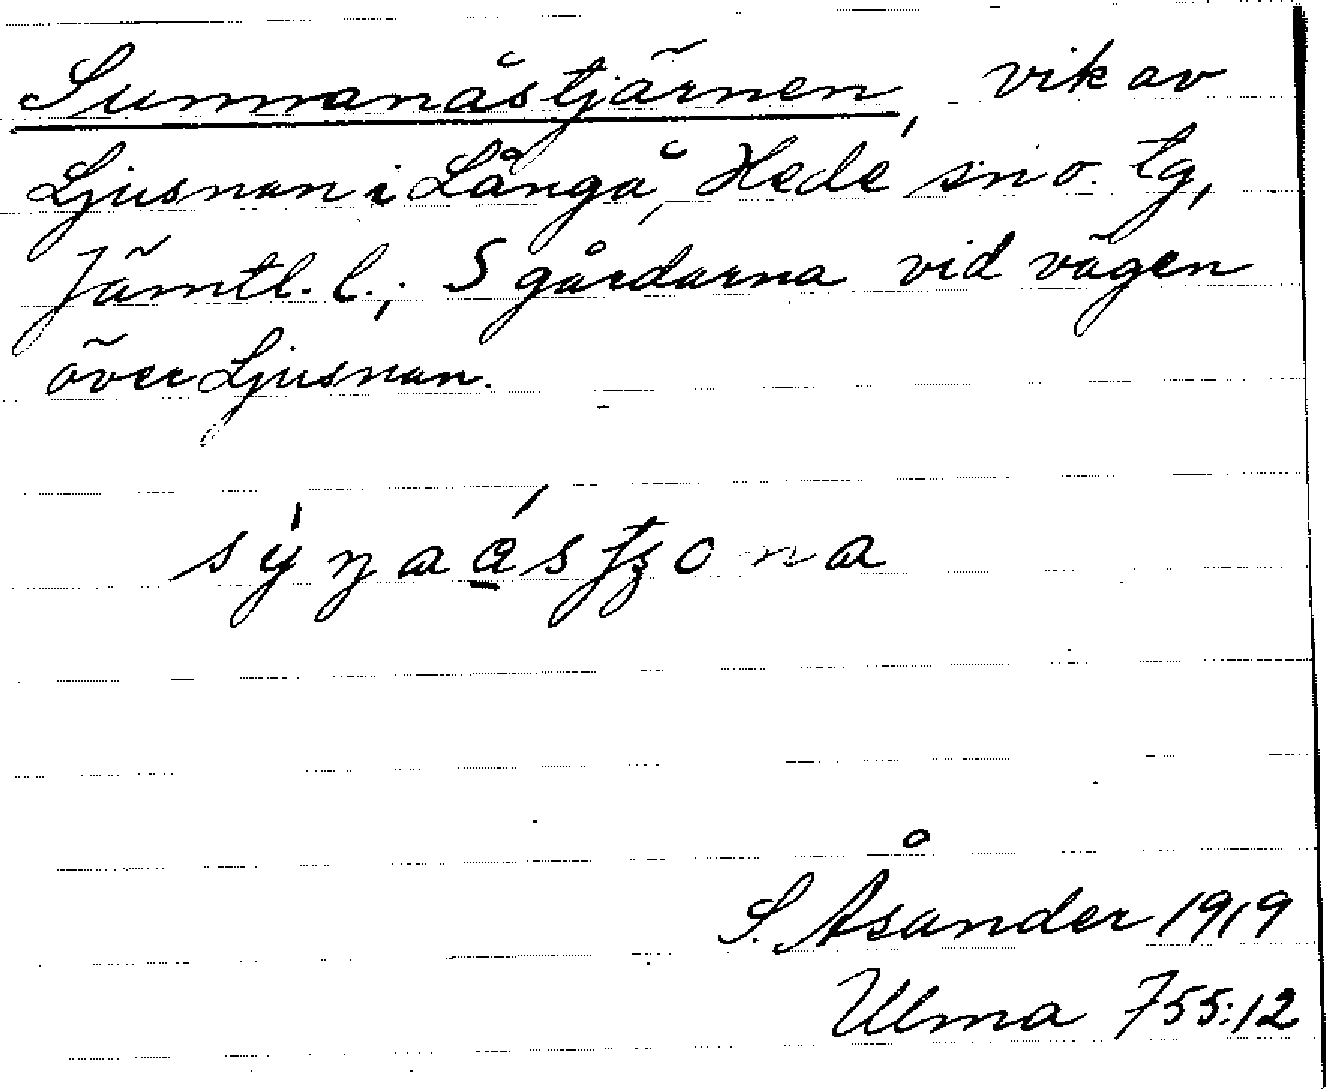 Sunnanåstjärnen, vik av
Ljusnan i Långå, Hede sn o. tg,
Jämtl. l.; S gårdarna vid vägen
över Ljusnan.
S. Åsander 1919
Ulma 755:12